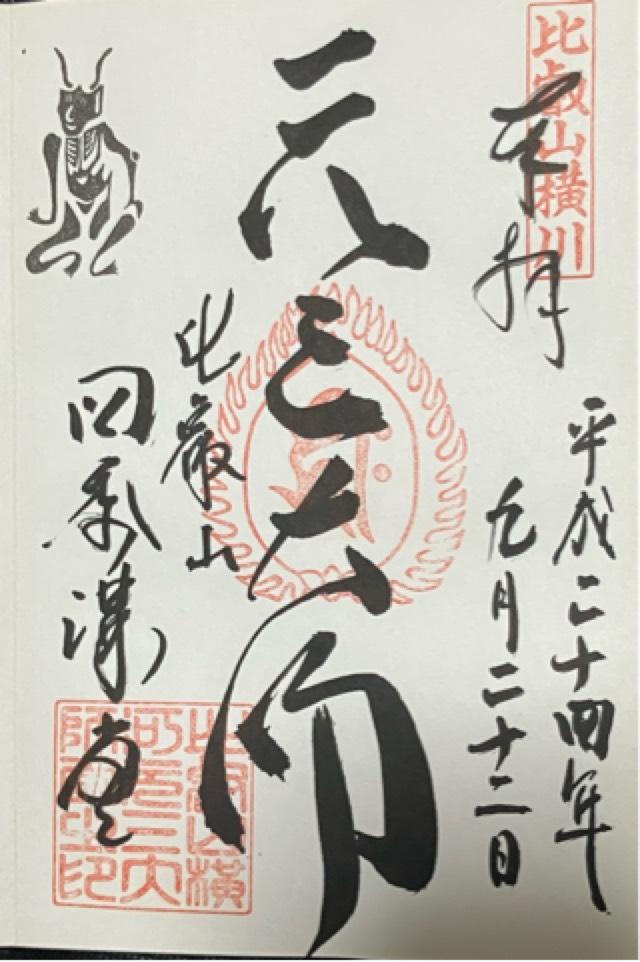 比叡山横川
奉拝
平成二十四年
九月二十二日
元三大師
比叡山
四季講堂